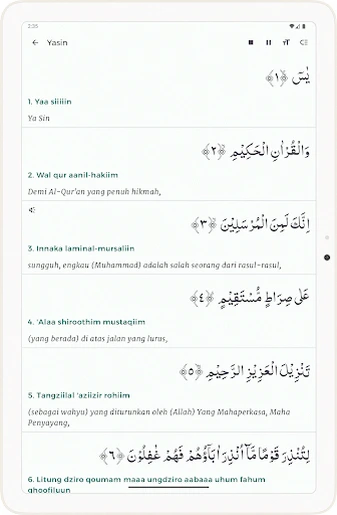 2:35
Yasin
يٰسۤ ﴿١﴾
1. Yaa siiiiin
Ya Sin
وَالْقُرْاٰنِ الْحَكِيْمِ ﴿٢﴾
2. Wal qur aanil-hakiim
Demi Al-Qur'an yang penuh hikmah,
اِنَّكَ لَمِنَ الْمُرْسَلِيْنَ ﴿٣﴾
3. Innaka laminal-mursaliin
sungguh, engkau (Muhammad) adalah salah seorang dari rasul-rasul,
عَلٰى صِرَاطٍ مُّسْتَقِيْمٍ ﴿٤﴾
4. 'Alaa shiroothim mustaqiim
(yang berada) di atas jalan yang lurus,
تَنْزِيْلَ الْعَزِيْزِ الرَّحِيْمِ ﴿٥﴾
5. Tangziilal 'aziizir rohiim
(sebagai wahyu) yang diturunkan oleh (Allah) Yang Mahaperkasa, Maha
Penyayang,
لِتُنْذِرَ قَوْمًا مَّآ اُنْذِرَ اٰبَاۤؤُهُمْ فَهُمْ غٰفِلُوْنَ ﴿٦﴾
6. Litung dziro qoumam maaa ungdziro aabaaa uhum fahum
ghoofiluun